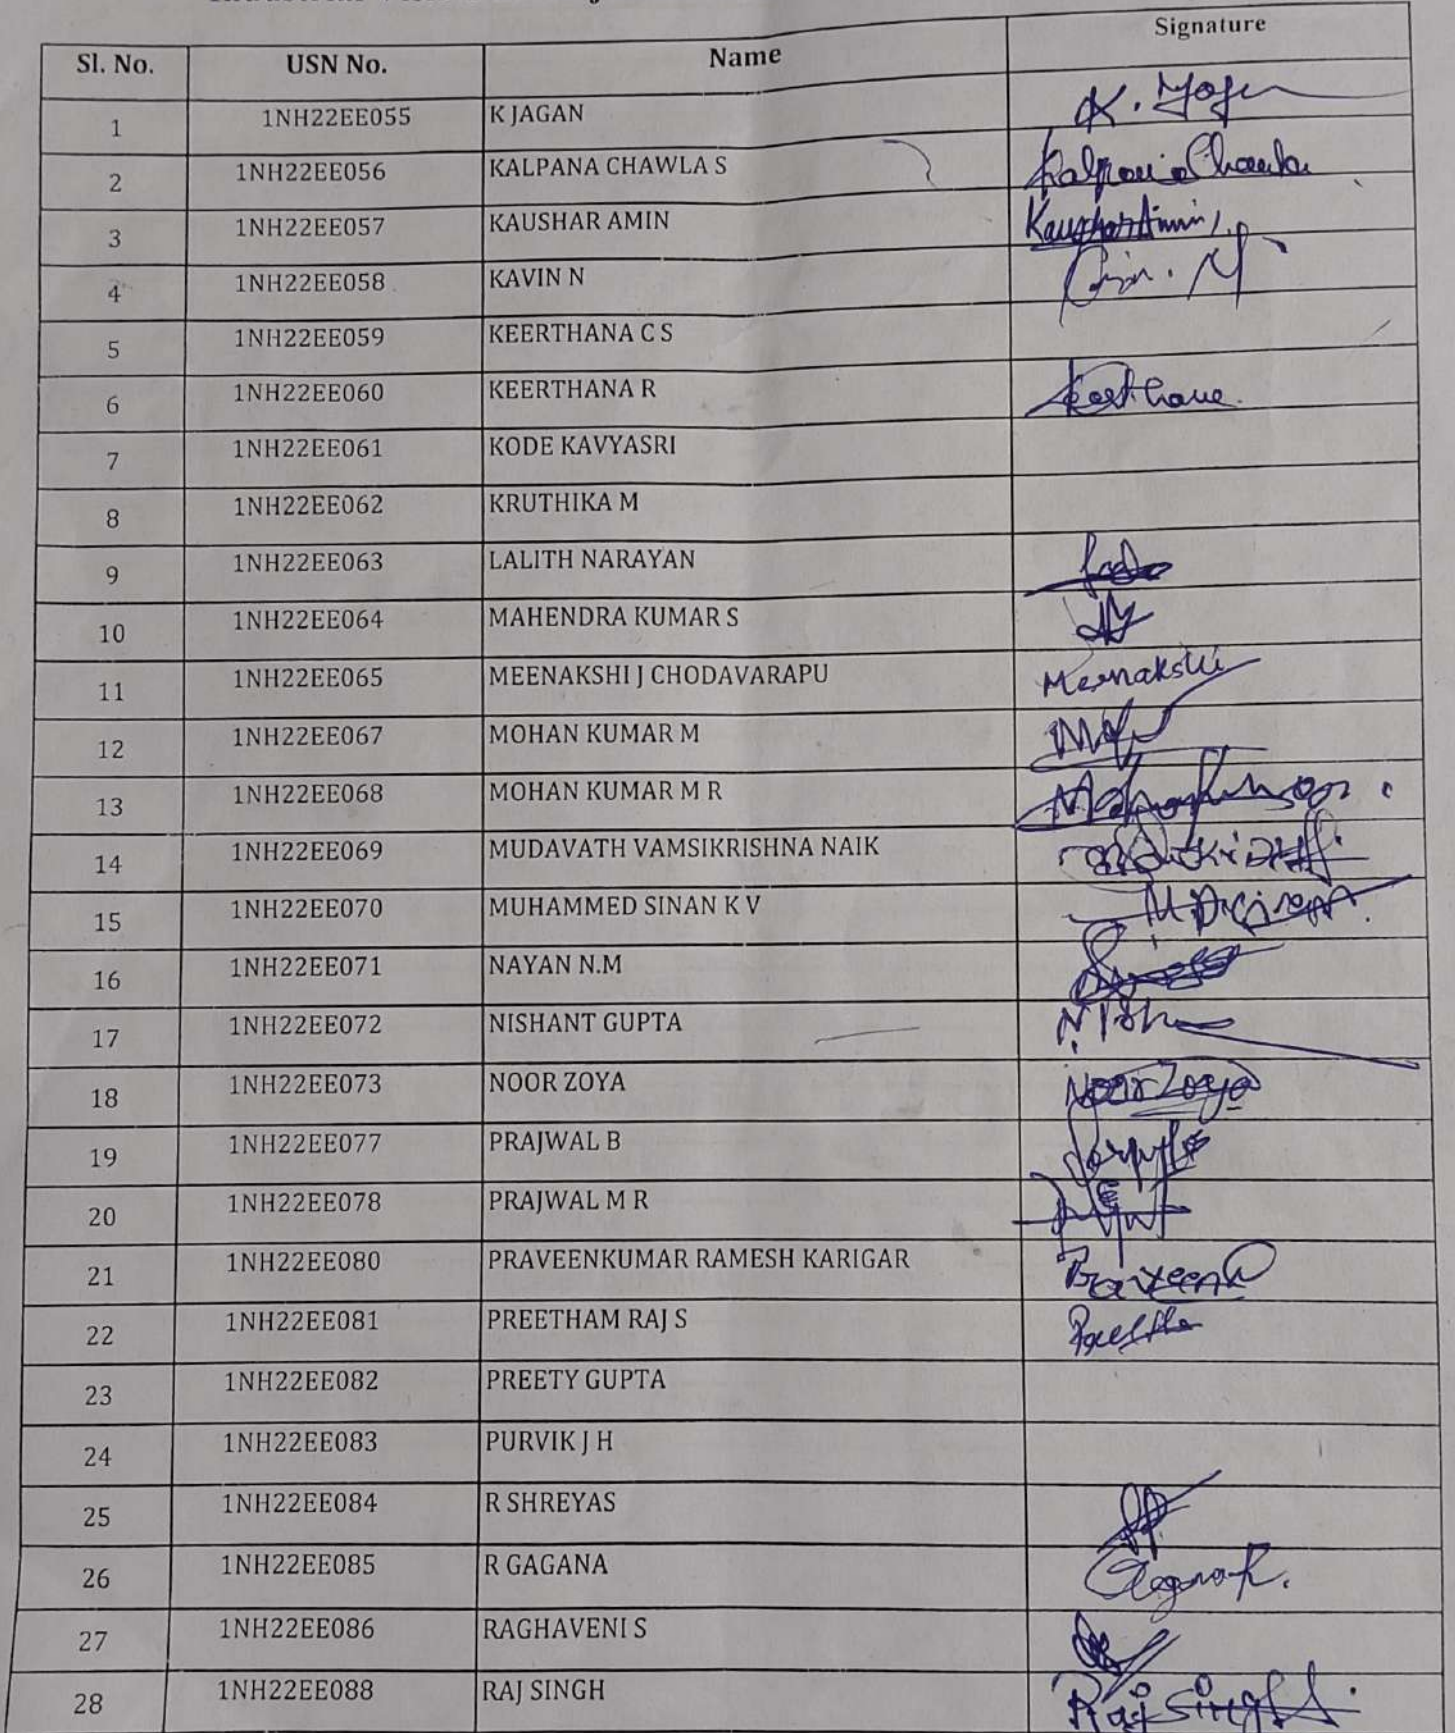 Sl. No. USN No. Name Signature
1 1NH22EE055 K JAGAN K.
2 1NH22EE056 KALPANA CHAWLA S Kalpana Chawla
3 1NH22EE057 KAUSHAR AMIN Kaushar Amin
4 1NH22EE058 KAVIN N
5 1NH22EE059 KEERTHANA C S
6 1NH22EE060 KEERTHANA R Keerthana
7 1NH22EE061 KODE KAVYASRI
8 1NH22EE062 KRUTHIKA M
9 1NH22EE063 LALITH NARAYAN
10 1NH22EE064 MAHENDRA KUMAR S
11 1NH22EE065 MEENAKSHI J CHODAVARAPU Meenakshi
12 1NH22EE067 MOHAN KUMAR M
13 1NH22EE068 MOHAN KUMAR M R
14 1NH22EE069 MUDAVATH VAMSIKRISHNA NAIK
15 1NH22EE070 MUHAMMED SINAN K V
16 1NH22EE071 NAYAN N.M
17 1NH22EE072 NISHANT GUPTA
18 1NH22EE073 NOOR ZOYA Noor Zoya
19 1NH22EE077 PRAJWAL B
20 1NH22EE078 PRAJWAL M R
21 1NH22EE080 PRAVEENKUMAR RAMESH KARIGAR Praveen
22 1NH22EE081 PREETHAM RAJ S
23 1NH22EE082 PREETY GUPTA
24 1NH22EE083 PURVIK J H
25 1NH22EE084 R SHREYAS
26 1NH22EE085 R GAGANA
27 1NH22EE086 RAGHAVENI S
28 1NH22EE088 RAJ SINGH Raj Singh